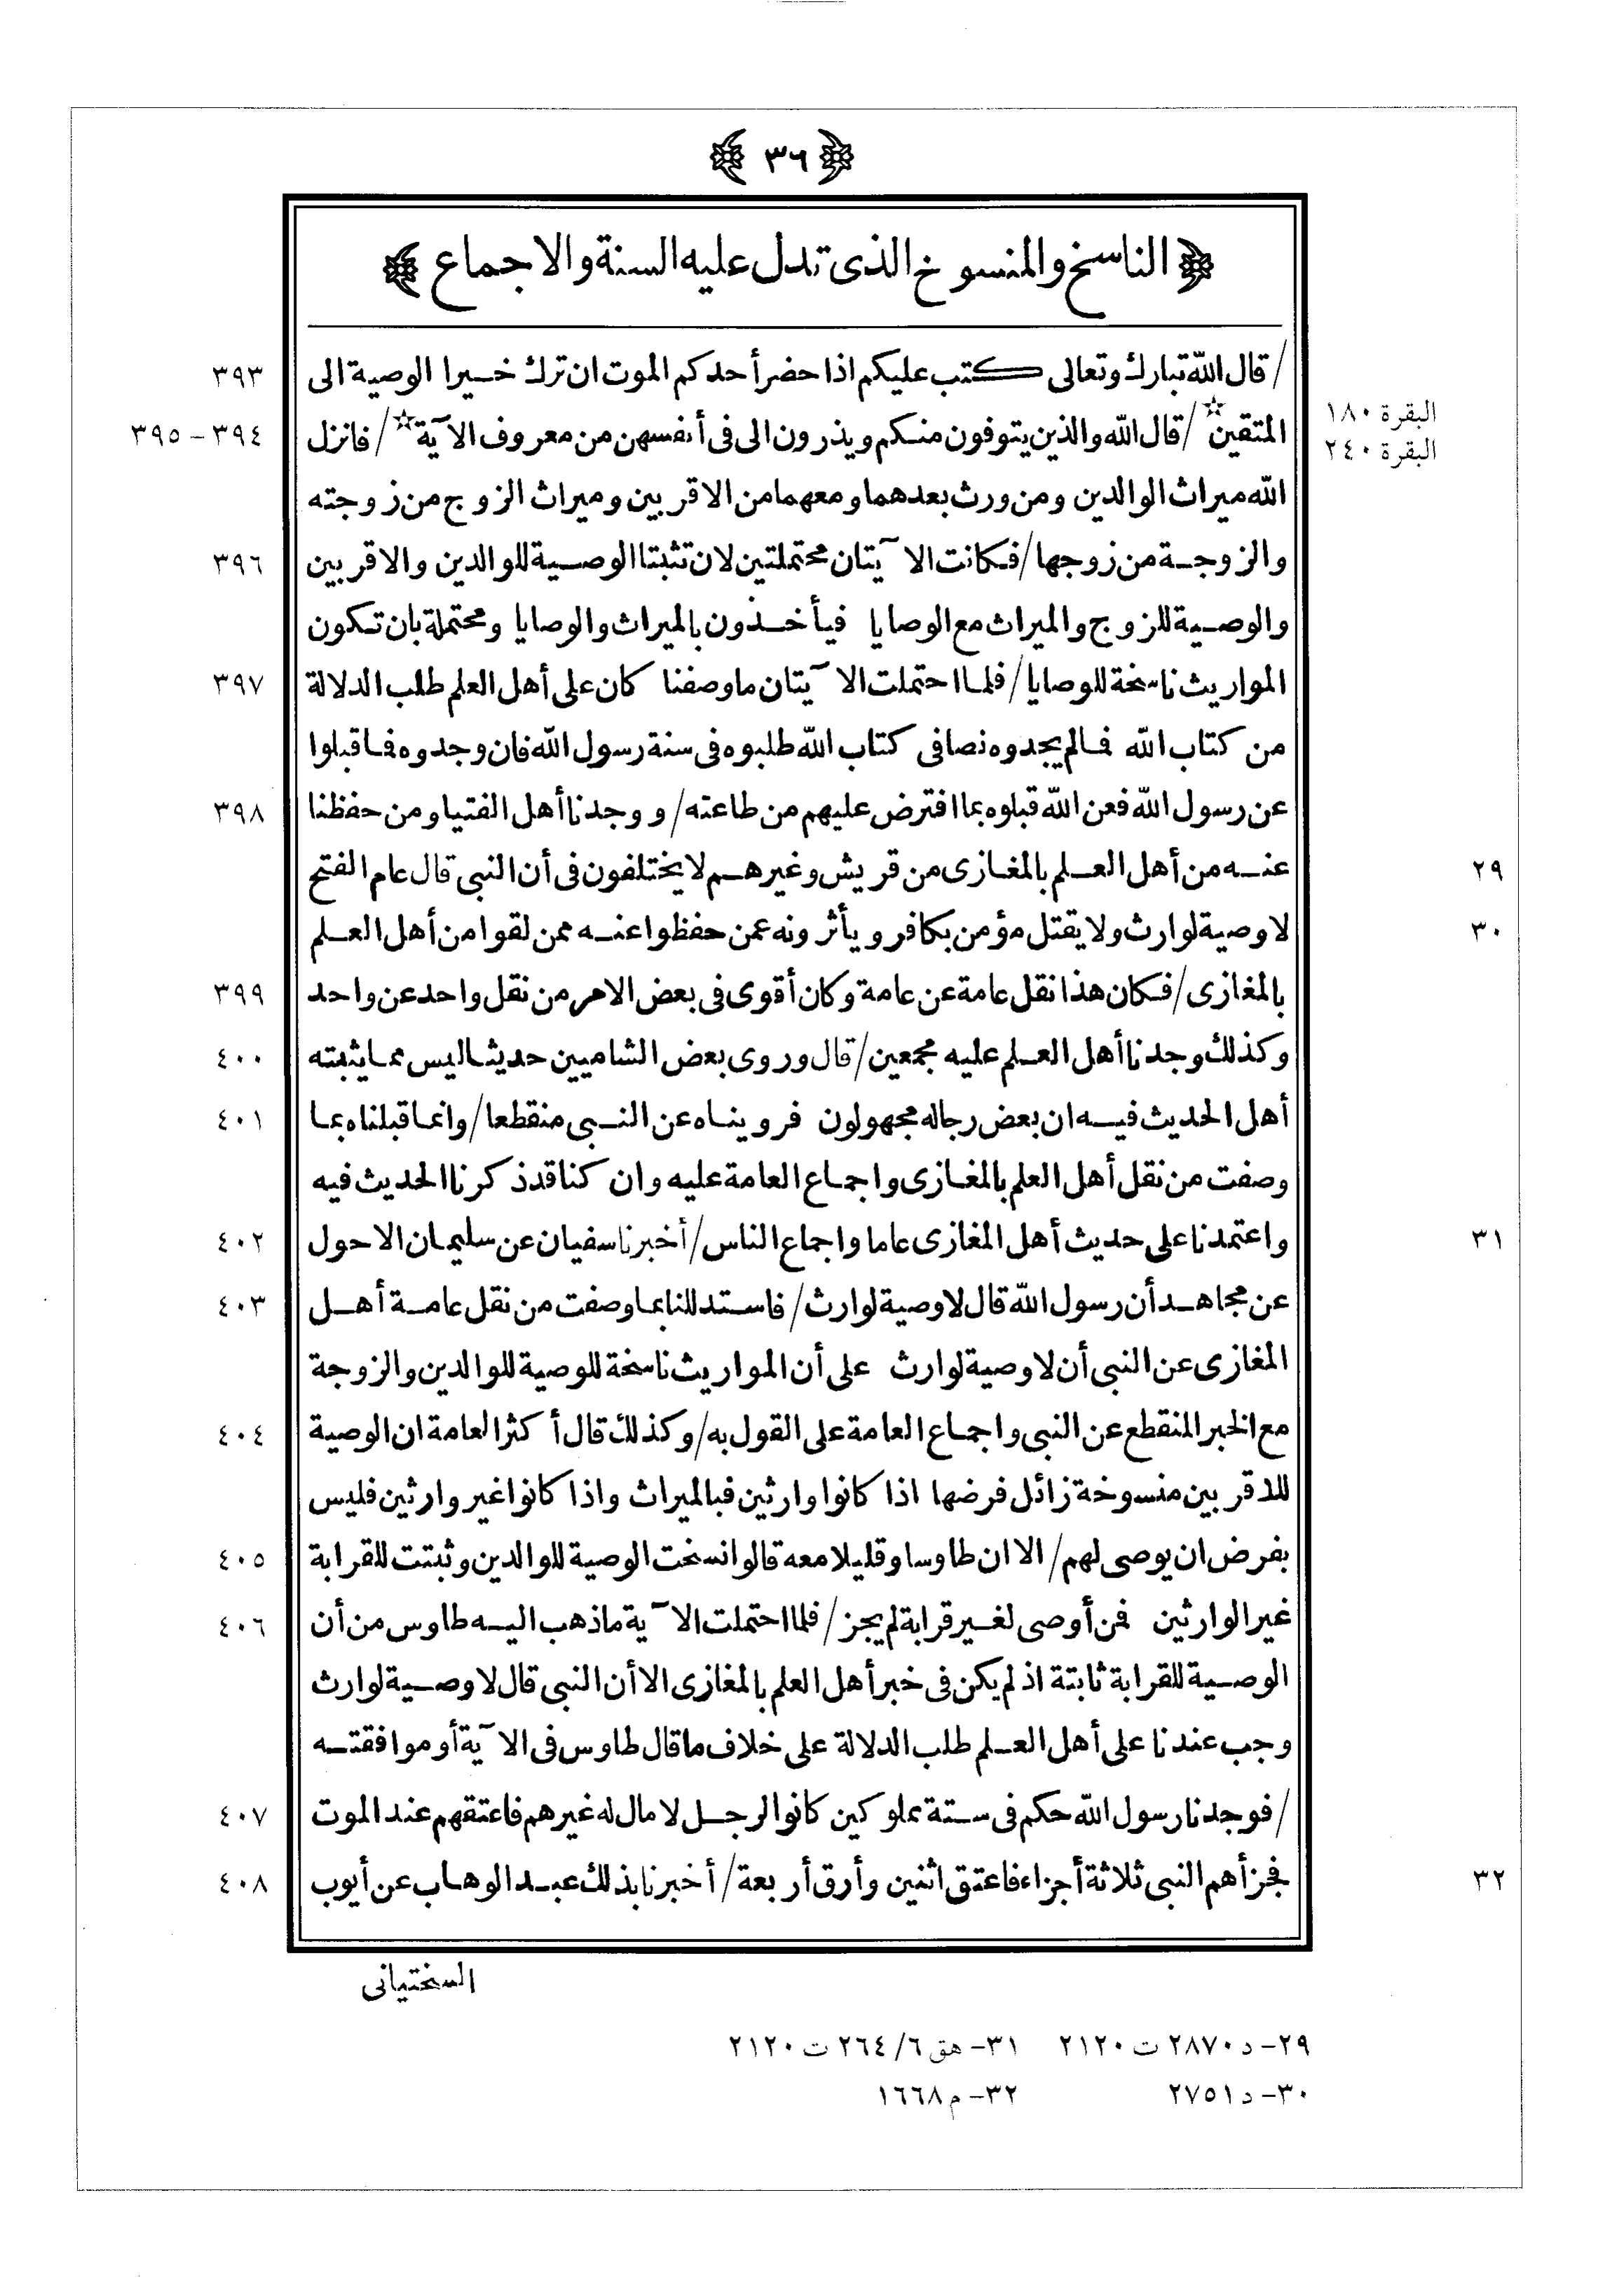 ﴿ ٣٦ ﴾
﴿ الناسخ والمنسوخ الذى تدل عليه السنة والاجماع ﴾
/ قال الله تبارك وتعالى كتب عليكم اذا حضر أحدكم الموت ان ترك خيرا الوصية الى ٣٩٣
البقرة ١٨٠
المتقين☆/ قال الله والذين يتوفون منكم ويذرون الى فى أنفسهن من معروف الآية☆/ فانزل ٣٩٤ – ٣٩٥
البقرة ٢٤٠
الله ميراث الوالدين ومن ورث بعدهما ومعهما من الاقربين وميراث الزوج من زوجته
والزوجة من زوجها/ فكانت الآيتان محتملتين لان تثبتا الوصية للوالدين والاقربين ٣٩٦
والوصية للزوج والميراث مع الوصايا فيأخذون بالميراث والوصايا ومحتملة بان تكون
المواريث ناسخة للوصايا/ فلما احتملت الآيتان ما وصفنا كان على أهل العلم طلب الدلالة ٣٩٧
من كتاب الله فما لم يجدوه نصا فى كتاب الله طلبوه فى سنة رسول الله فان وجدوه فما قبلوا
عن رسول الله فعن الله قبلوه بما افترض عليهم من طاعته/ ووجدنا أهل الفتيا ومن حفظنا ٣٩٨
٢٩ عنه من أهل العلم بالمغازى من قريش وغيرهم لا يختلفون فى أن النبى قال عام الفتح
٣٠ لا وصية لوارث ولا يقتل مؤمن بكافر ويأثرونه عمن حفظوا عنه ممن لقوا من أهل العلم
بالمغازى/ فكان هذا نقل عامة عن عامة وكان أقوى فى بعض الامر من نقل واحد عن واحد ٣٩٩
وكذلك وجدنا أهل العلم عليه مجمعين/ قال وروى بعض الشاميين حديثا ليس مما يثبته ٤٠٠
أهل الحديث فيه ان بعض رجاله مجهولون فرويناه عن النبى منقطعا/ وانما قبلناه بما ٤٠١
وصفت من نقل أهل العلم بالمغازى واجماع العامة عليه وان كنا قد ذكرنا الحديث فيه
٣١ واعتمدنا على حديث أهل المغازى عاما واجماع الناس/ أخبرنا سفيان عن سليمان الاحول ٤٠٢
عن مجاهد أن رسول الله قال لا وصية لوارث/ فاستدللنا بما وصفت من نقل عامة أهل ٤٠٣
المغازى عن النبى أن لا وصية لوارث على أن المواريث ناسخة للوصية للوالدين والزوجة
مع الخبر المنقطع عن النبى واجماع العامة على القول به/ وكذلك قال أكثر العامة ان الوصية ٤٠٤
للاقربين منسوخة زائل فرضها اذا كانوا وارثين فبالميراث واذا كانوا غير وارثين فليس
بفرض ان يوصى لهم/ الا ان طاوسا وقليلا معه قالوا نسخت الوصية للوالدين وثبتت للقرابة ٤٠٥
غير الوارثين فمن أوصى لغير قرابة لم يجز/ فلما احتملت الآية ما ذهب اليه طاوس من أن ٤٠٦
الوصية للقرابة ثابتة اذ لم يكن فى خبر أهل العلم بالمغازى الا أن النبى قال لا وصية لوارث
وجب عندنا على أهل العلم طلب الدلالة على خلاف ما قال طاوس فى الآية أو موافقته
/ فوجدنا رسول الله حكم فى ستة مملوكين كانوا لرجل لا مال له غيرهم فاعتقهم عند الموت ٤٠٧
٣٢ فجزأهم النبى ثلاثة أجزاء فاعتق اثنين وأرق أربعة/ أخبرنا بذلك عبد الوهاب عن أيوب ٤٠٨
السختيانى
٢٩– د ٢٨٧٠ ت ٢١٢٠ ٣١– هق ٦/ ٢٦٤ ت ٢١٢٠
٣٠– د ٢٧٥١ ٣٢– م ١٦٦٨